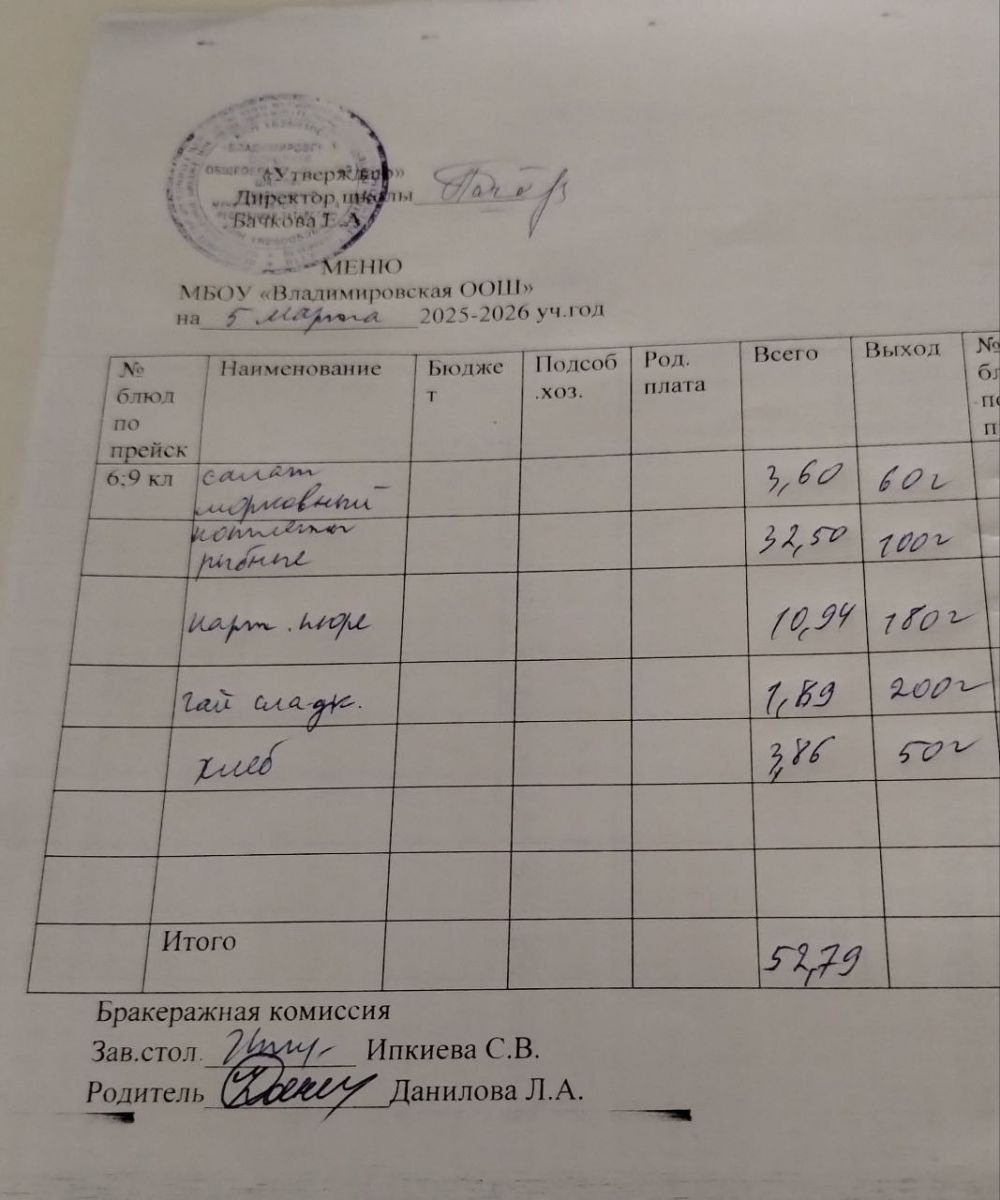 «Утверждаю»
Директор школы
Бачкова Г.А
МЕНЮ
МБОУ «Владимировская ООШ»
на 5 марта 2025-2026 уч.год
№ блюд по прейск Наименование Бюдже т Подсоб .хоз. Род. плата Всего Выход №
6:9 кл салат морковный 3,60 60г
котлеты рыбные 32,50 100г
карт. пюре 10,94 180г
чай сладк. 1,89 200г
хлеб 3,86 50г
Итого 52,79
Бракеражная комиссия
Зав.стол. Ипкиева С.В.
Родитель Данилова Л.А.